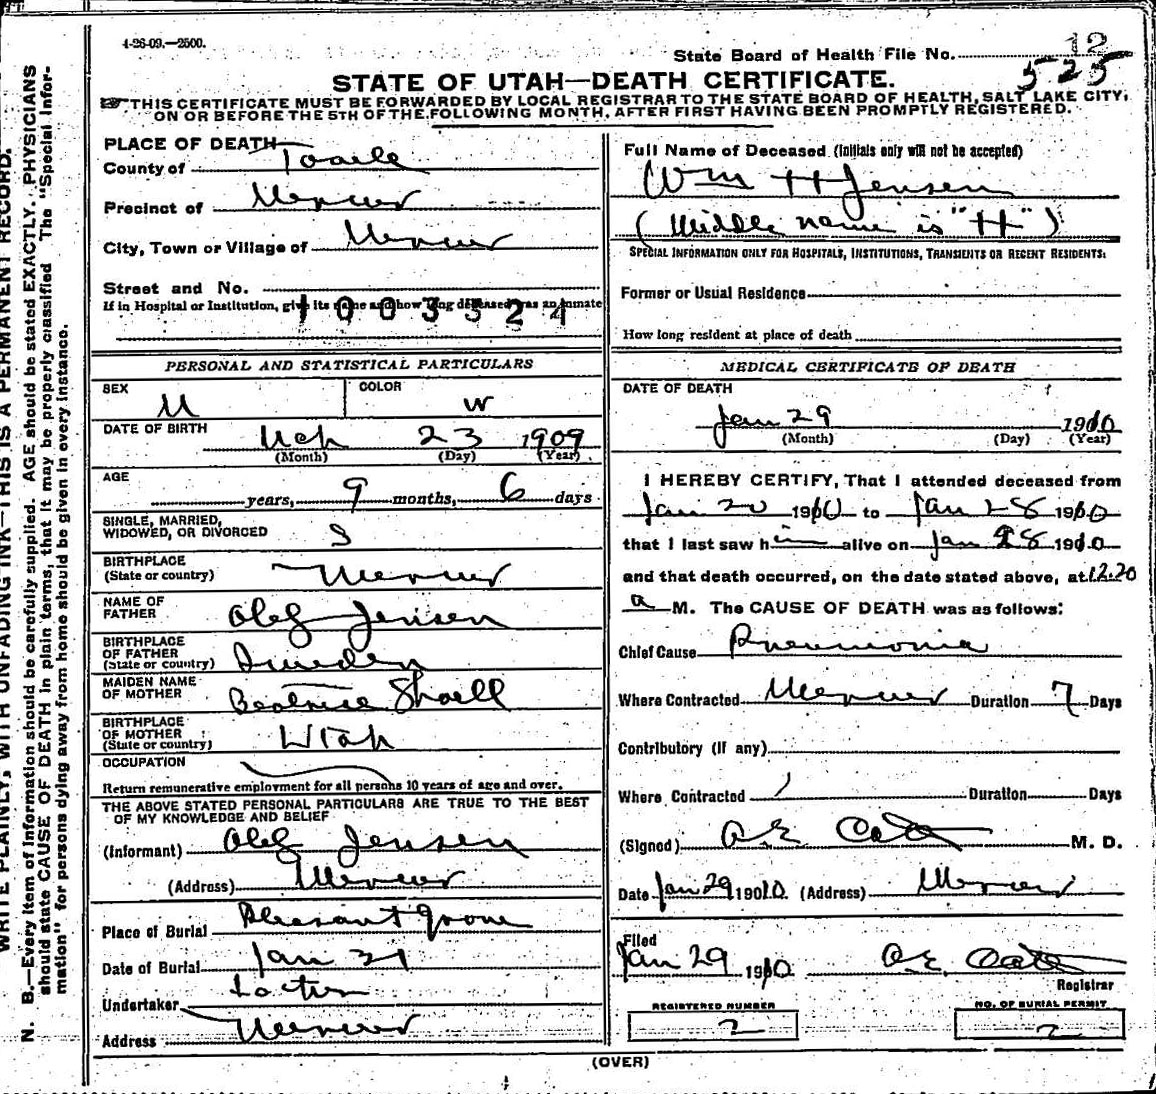 4-26-09.—2500.
State Board of Health File No. 12
525
STATE OF UTAH—DEATH CERTIFICATE.
THIS CERTIFICATE MUST BE FORWARDED BY LOCAL REGISTRAR TO THE STATE BOARD OF HEALTH, SALT LAKE CITY,
ON OR BEFORE THE 5TH OF THE FOLLOWING MONTH, AFTER FIRST HAVING BEEN PROMPTLY REGISTERED.
PLACE OF DEATH
County of Tooele
Precinct of Mercur
City, Town or Village of Mercur
Street and No.
If in Hospital or Institution, give its name and how long deceased was an inmate
1003521
PERSONAL AND STATISTICAL PARTICULARS
SEX M COLOR W
DATE OF BIRTH Mch 23 1909
(Month) (Day) (Year)
AGE
years, 9 months, 6 days
SINGLE, MARRIED,
WIDOWED, OR DIVORCED S
BIRTHPLACE
(State or country) Mercur
NAME OF
FATHER Olef Jensen
BIRTHPLACE
OF FATHER
(State or country) Sweden
MAIDEN NAME
OF MOTHER Beatrice Shoell
BIRTHPLACE
OF MOTHER
(State or country) Utah
OCCUPATION
Return remunerative employment for all persons 10 years of age and over.
THE ABOVE STATED PERSONAL PARTICULARS ARE TRUE TO THE BEST
OF MY KNOWLEDGE AND BELIEF
(Informant) Olef Jensen
(Address) Mercur
Place of Burial Pleasant Grove
Date of Burial Jan 31
Undertaker
Address Mercur
Full Name of Deceased (Initials only will not be accepted)
Wm H Jensen
(Middle name is "H")
SPECIAL INFORMATION ONLY FOR HOSPITALS, INSTITUTIONS, TRANSIENTS OR RECENT RESIDENTS:
Former or Usual Residence
How long resident at place of death
MEDICAL CERTIFICATE OF DEATH
DATE OF DEATH
Jan 29 1910
(Month) (Day) (Year)
I HEREBY CERTIFY, That I attended deceased from
Jan 20 1910 to Jan 28 1910
that I last saw him alive on Jan 28 1910
and that death occurred, on the date stated above, at 12.20
a M. The CAUSE OF DEATH was as follows:
Chief Cause Pneumonia
Where Contracted Mercur Duration 7 Days
Contributory (if any)
Where Contracted Duration Days
(Signed) M. D.
Date Jan 29 1910. (Address) Mercur
Filed
Jan 29 1910
Registrar
REGISTERED NUMBER
2
NO. OF BURIAL PERMIT
2
(OVER)
WRITE PLAINLY, WITH UNFADING INK—THIS IS A PERMANENT RECORD.
N. B.—Every item of information should be carefully supplied. AGE should be stated EXACTLY. PHYSICIANS
should state CAUSE OF DEATH in plain terms, that it may be properly classified The "Special Infor-
mation" for persons dying away from home should be given in every instance.